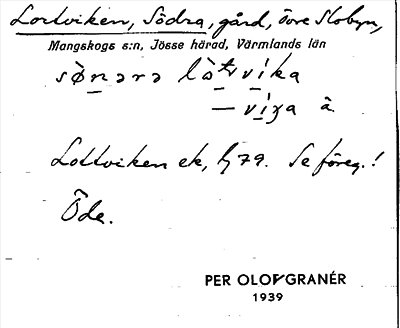 Lortviken, Södra, gård, övre Slobyn,
Mangskogs s:n, Jösse härad, Värmlands län
sø̀nərə lòtvika
— viga â
Lottviken ek, bj 79. Se föreg.!
Öde.
PER OLOF GRANÉR
1939